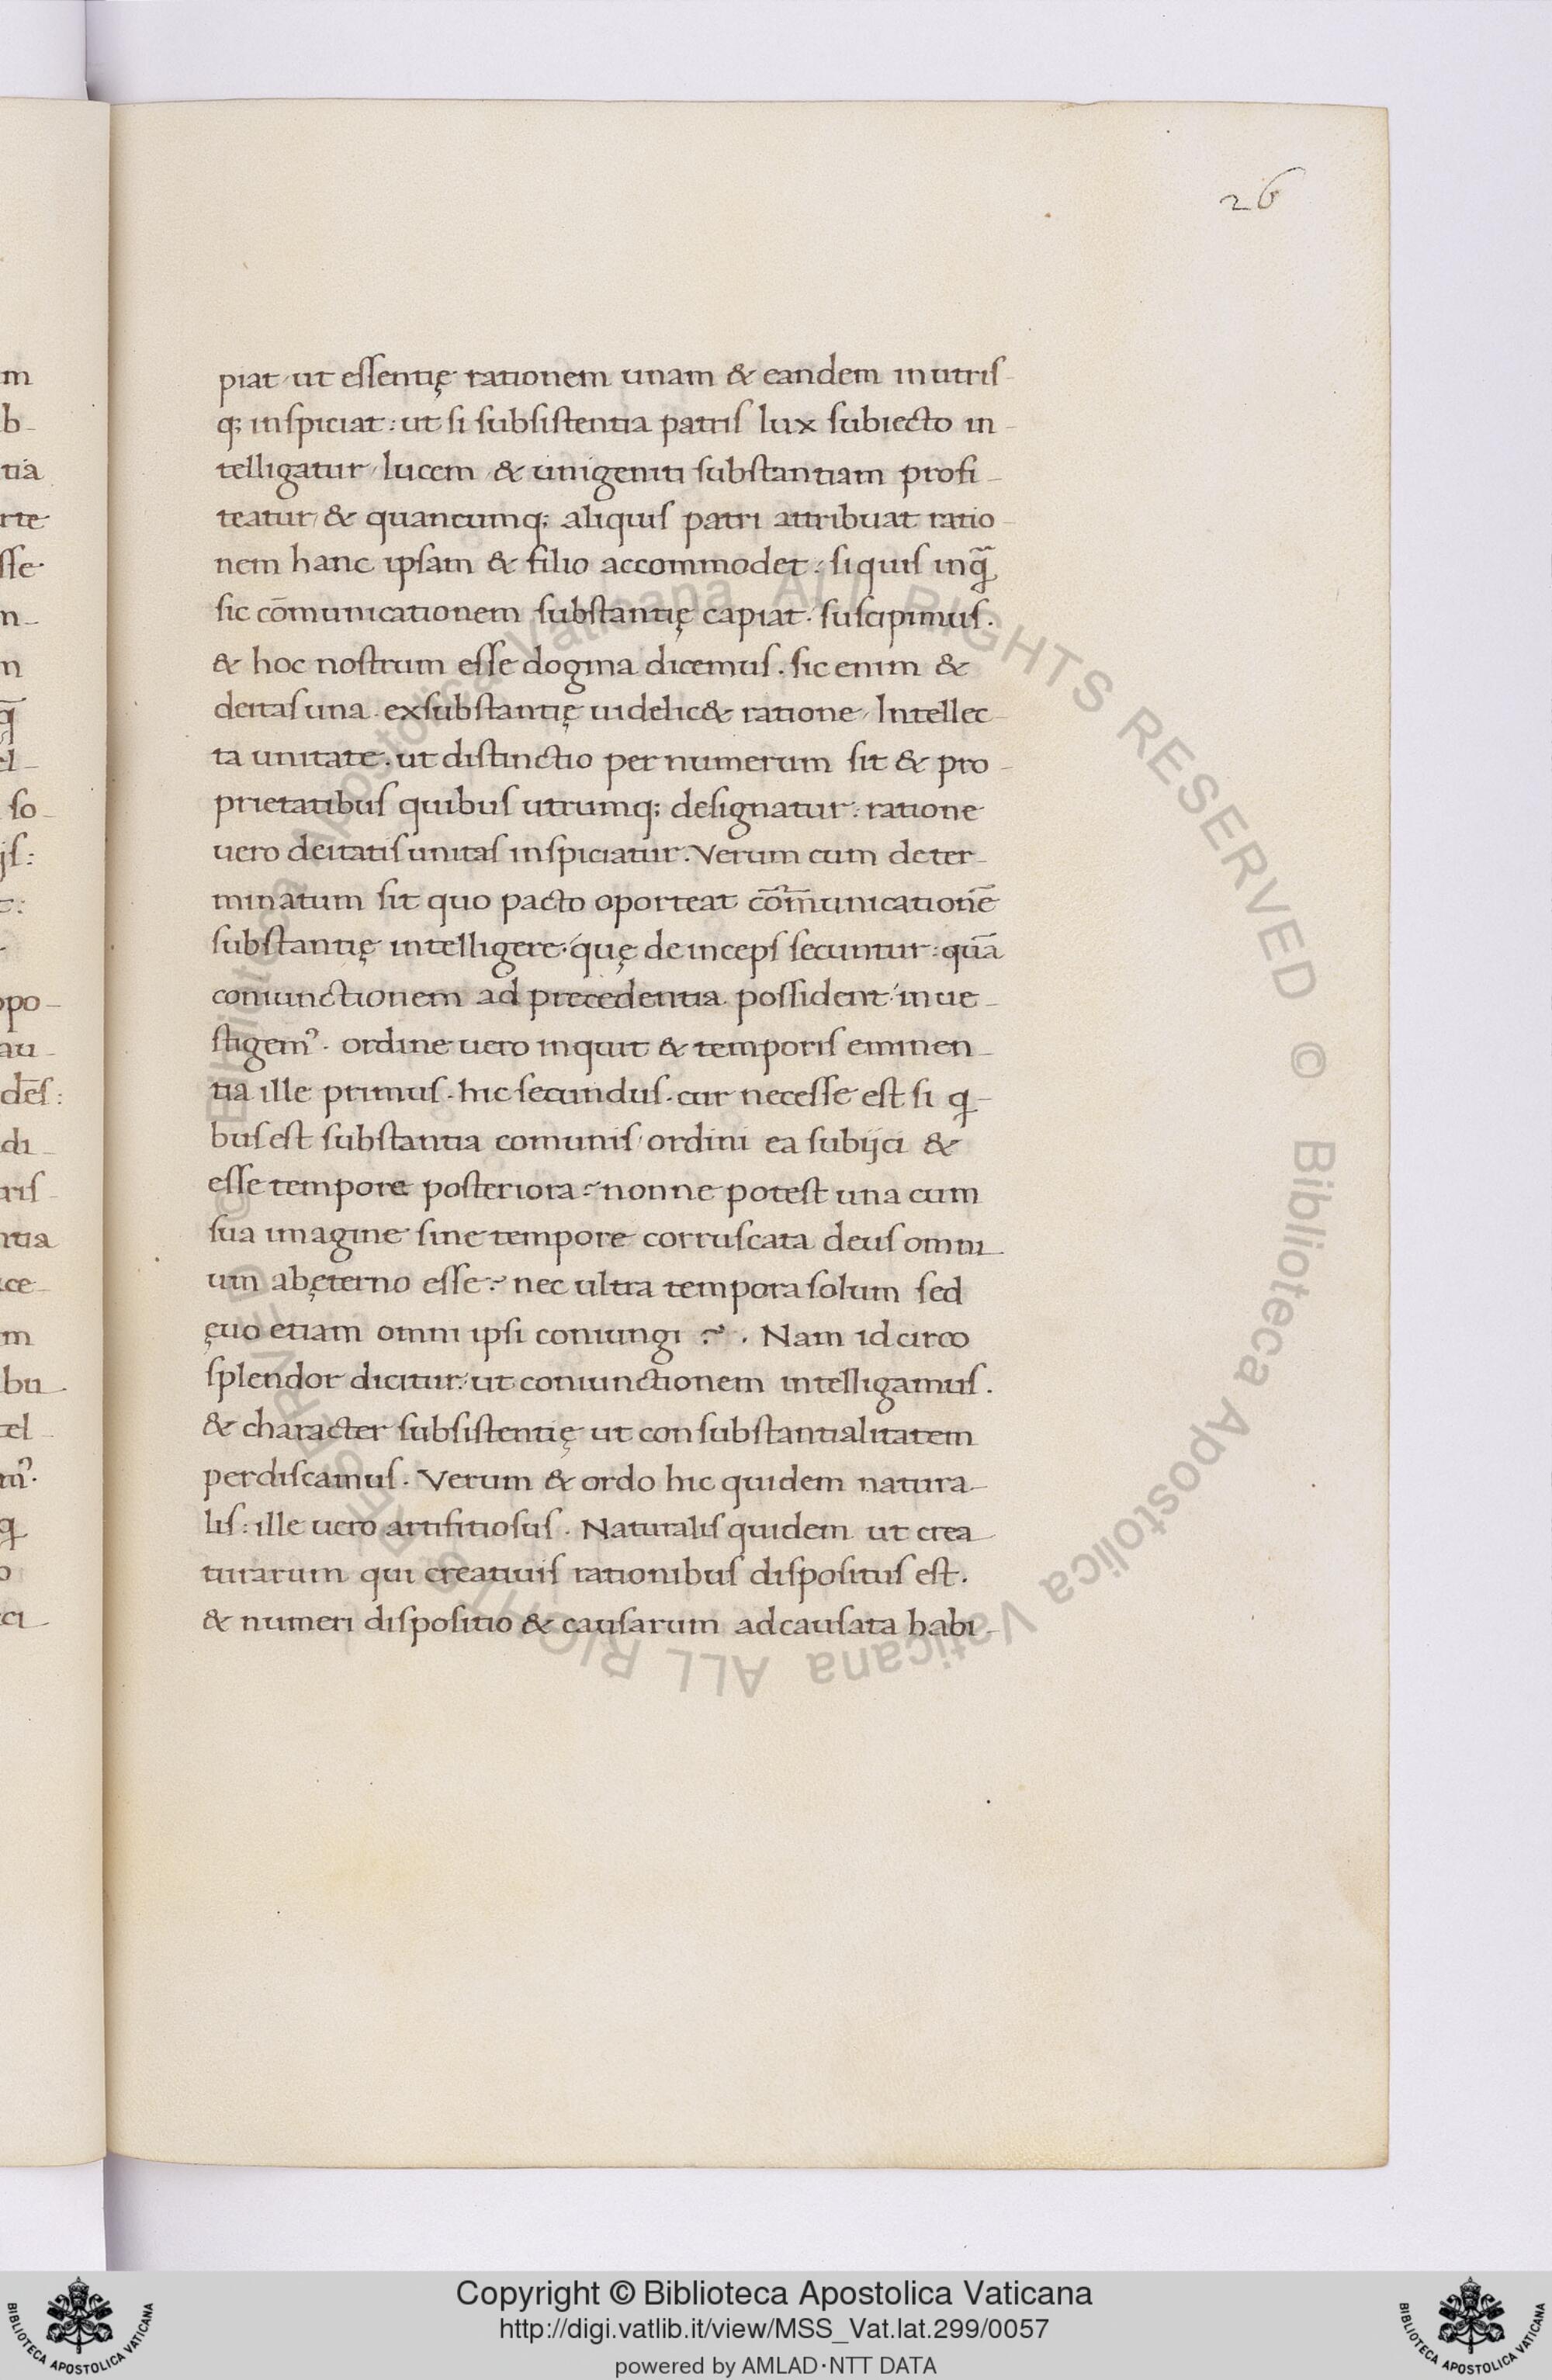 26
piat ut essentię rationem unam & eandem in utris-
q; inspiciat: ut si subsistentia patris lux subiecto in-
telligatur, lucem & unigeniti substantiam profi-
teatur, & quancumq; aliquis patri attribuat ratio-
nem hanc ipsam & filio accommodet: si quis inq̃
sic cōmunicationem substantię capiat. suscipimus.
& hoc nostrum esse dogma dicemus. sic enim &
deitas una ex substantię uidelic& ratione, Intellec-
ta unitate. ut distinctio per numerum sit & pro-
prietatibus quibus utrumq; designatur: ratione
uero deitatis unitas inspiciatur. Verum cum deter-
minatum sit quo pacto oporteat cōm̃unicationē
substantię intelligere. quę deinceps secuntur: quā
coniunctionem ad precedentia possident inue-
stigem⁹. ordine uero inquit & temporis eminen-
tia ille primus. hic secundus. cur necesse est si q-
bus est substantia comunis, ordini ea subijci &
esse tempore posteriora? nonne potest una cum
sua imagine sine tempore corruscata deus omni-
um ab ęterno esse? nec ultra tempora solum sed
ęuo etiam omni ipsi coniungi?. Nam id circo
splendor dicitur: ut coniunctionem intelligamus.
& character subsistentię ut consubstantialitatem
perdiscamus. Verum & ordo hic quidem natura-
lis: ille uero artifitiosus. Naturalis quidem ut crea-
turarum qui creatiuis rationibus dispositus est.
& numeri dispositio & causarum ad causata habi-
Copyright © Biblioteca Apostolica Vaticana
http://digi.vatlib.it/view/MSS_Vat.lat.299/0057
powered by AMLAD·NTT DATA
BIBLIOTECA APOSTOLICA VATICANA
BIBLIOTECA APOSTOLICA VATICANA